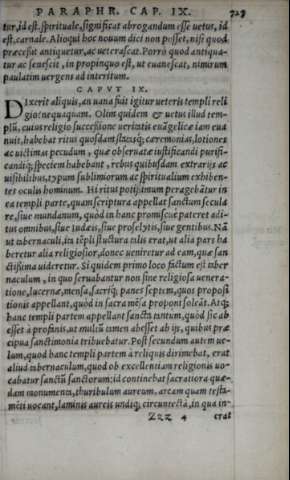 PARAPHR. CAP. IX. 723
tur, id est, spirituale, significat abrogandum esse uetus, id
est, carnale. Alioqui hoc nouum dici non posset, nisi quod
præcessit antiquetur, ac ueterascat. Porrò quod antiqua-
tur ac senescit, in propinquo est, ut euanescat, nimirum
paulatim uergens ad interitum.
CAPVT IX.
Dixerit aliquis, an uana fuit igitur ueteris templi reli
gio? nequaquam. Olim quidem & uetus illud tem-
plũ, cuius religio successione ueritatis euãgelicæ iam eua
nuit, habebat ritus quosdam statósq;, ceremonias, lotiones
ac uictimas pecudum, quæ obseruatæ iustificandi purifi-
candiq; spectem habebant, rebus quibusdam extrarijs ac
uisibilibus, typum sublimiorum ac spiritualium exhiben-
tes oculis hominum. Hi ritus potissimum peragebãtur in
ea templi parte, quam scriptura appellat sanctum secula
re, siue mundanum, quòd in hanc promiscuè pateret adi-
tus omnibus, siue iudæis, siue proselytis, siue gentibus. Nã
ut tabernaculi, ita tẽpli structura talis erat, ut alia pars ha
beretur alia religiosior, donec ueniretur ad eam, quæ san
ctissima uideretur. Siquidem primo loco factum est taber
naculum, in quo seruabantur non sine religiosa uenera-
tione, lucerna, mensa, sacriq; panes septem, quos proposi
tionis appellant, quòd in sacra mẽsa proponi soleãt. Atq;
hanc templi partem appellant sanctã tantum, quòd sic ab
esset à profanis, ut multũ tamen abesset ab ijs, quibus præ
cipua sanctimonia tribuebatur. Post secundum autem ue-
lum, quod hanc templi partem à reliquis dirimebat, erat
aliud tabernaculum, quod ob excellentiam religionis uo-
cabatur sanctũ sanctorum: id continebat sacratiora quæ-
dam monumenta, thuribulum aureum, arcam quam testa-
mẽti uocant, laminis aureis undiq; circuntectã, in qua in-
Zzz 4 erat